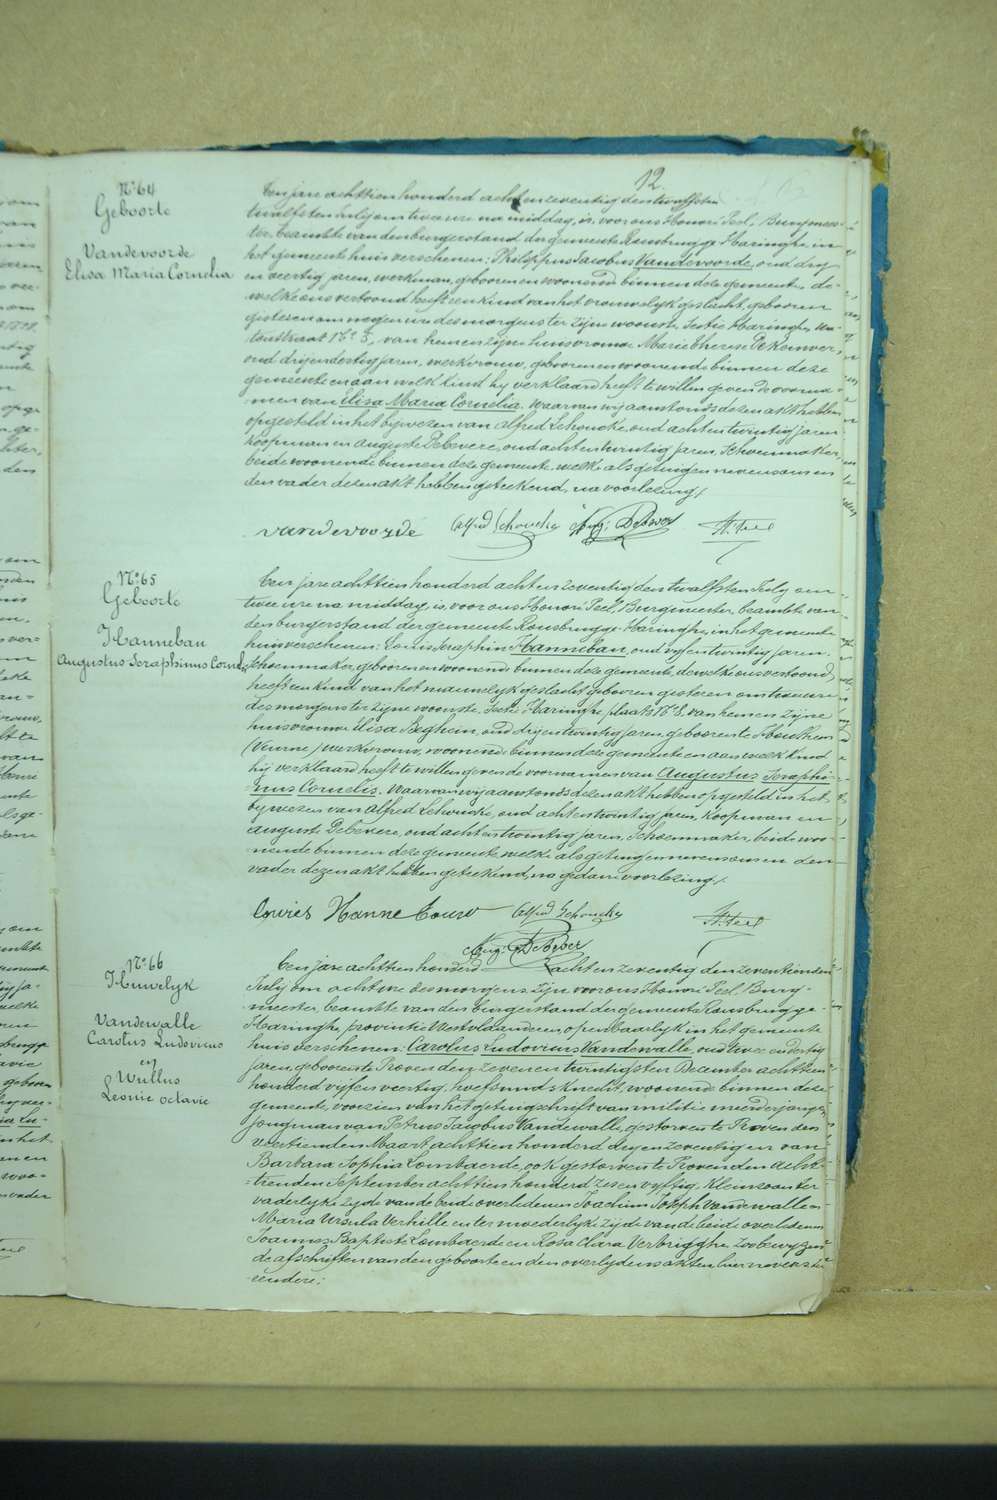 12.
N.º 64
Geboorte
Vandevoorde
Elisa Maria Cornelia
Een jare achttien honderd achtenzeventig den twaelfsten
twaelfsten July om twee ure na middag, is voor ons Honoré Peel, Burgmees-
ter, beambte van den burgerstand der gemeente Rousbrugge Haringhe, in
het gemeentehuis verschenen: Philippus Jacobus Vandevoorde, oud dry
en veertig jaren, werkman, geboren en woonende binnen deze gemeente, de-
welke ons vertoond heeft een kind van het vrouwelyk geslacht, geboren
gisteren om negen ure des morgens ter zyne woonste, Sectie Haringhe,
straat N.º 5, van hem en zyne huisvrouw Marie Therese De Keuwer,
oud dryendertig jaren, werkvrouw, geboren en woonende binnen deze
gemeente en aan welk kind hy verklaard heeft te willen geven de voorna-
men van Elisa Maria Cornelia. Waarvan wy aanstonds dezen akt hebben
opgesteld in het bywezen van Alfred Schoucke, oud achtentwintig jaren
koopman en Auguste Debevere, oud achtentwintig jaren, Schoenmaker,
beide woonende binnen deze gemeente, welke als getuigen nevens ons en
den vader dezen akt hebben geteekend, na voorlezing./.
vandevoorde Alfred Schoucke Aug: DeBever H. Peel
N.º 65
Geboorte
Hanneban
Augustus Seraphinus Cornel.
Een jare achttien honderd achtenzeventig den twaelfsten July om
twee ure na middag, is voor ons Honoré Peel, Burgemeester, beambte van
den burgerstand der gemeente Rousbrugge-Haringhe, in het gemeente
huis verschenen: Louis Seraphin Hanneban, oud vyfentwintig jaren,
Schoenmaker, geboren en woonende binnen deze gemeente, dewelke ons vertoond
heeft een kind van het mannelyk geslacht geboren gisteren om twee ure
des morgens ter zyne woonste, Sectie Haringhe, plaats N.º 8, van hem en zyne
huisvrouw Elisa Beghein, oud dryentwintig jaren, geboren te Houthem
(Veurne) werkvrouw, woonende binnen deze gemeente en aan welk kind
hy verklaard heeft te willen geven de voornamen van Augustus Seraphi-
nus Cornelis. Waarvan wy aanstonds dezen akt hebben opgesteld in het
bywezen van Alfred Schoucke, oud achtentwintig jaren, Koopman en
Auguste Debevere, oud achtentwintig jaren, Schoenmaker, beide woo-
nende binnen deze gemeente welke als getuigen nevens ons en den
vader dezen akt hebben geteekend, na gedane voorlezing./.
Louies Hanne Alfred Schoucke H. Peel
Aug: DeBever
N.º 66
Huwelyk
Vandewalle
Carolus Ludovicus
en
Wullus
Leonie Octavie
Een jare achttien honderd achtenzeventig den zeventienden
July om acht ure des morgens zyn voor ons Honoré Peel, Burg-
meester, beambte van den burgerstand der gemeente Rousbrugge-
Haringhe, provintie Westvlaanderen, openbaarlyk in het gemeente
huis verschenen: Carolus Ludovicus Vandewalle, oud twee en dertig
jaren geboren te Proven den zevenentwintigsten December achttien
honderd vyfenveertig, hoefsmids knecht, woonende binnen deze
gemeente, voorzien van het getuigschrift van militie meerderjarige
jongman van Petrus Jacobus Vandewalle, gestorven te Proven den
veertienden Maart achttien honderd dryenzeventig en van
Barbara Sophia Lombaerde, ook gestorven te Proven den acht-
tienden September achttien honderd zesenvyftig. Kleinzoon ter
vaderlyke zyde van de beide overledenen Joachim Joseph Vandewalle en
Maria Ursula Verhille en ter moederlyke zyde van de beide overledenen
Joannes Baptiste Lombaerde en Rosa Clara Verbrigghe, zoo bewyzen
de afschriften van den geboorte en den overlydens akten hier nevens te